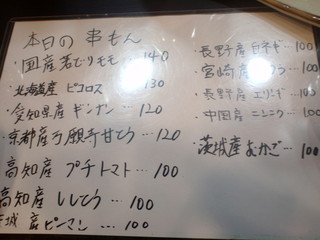 本日の串もん
・国産若どりモモ…140
・北海道産 ピコロス 130
・愛知県産ギンナン…120
・京都産万願寺甘とう…120
高知産 プチトマト…100
高知産 ししとう…100
茨城産ピーマン…100
・長野産白ネギ…100
・宮崎産オクラ…100
・長野産エリンギ…100
・中国産ニンニク…100
・茨城産むかご…100